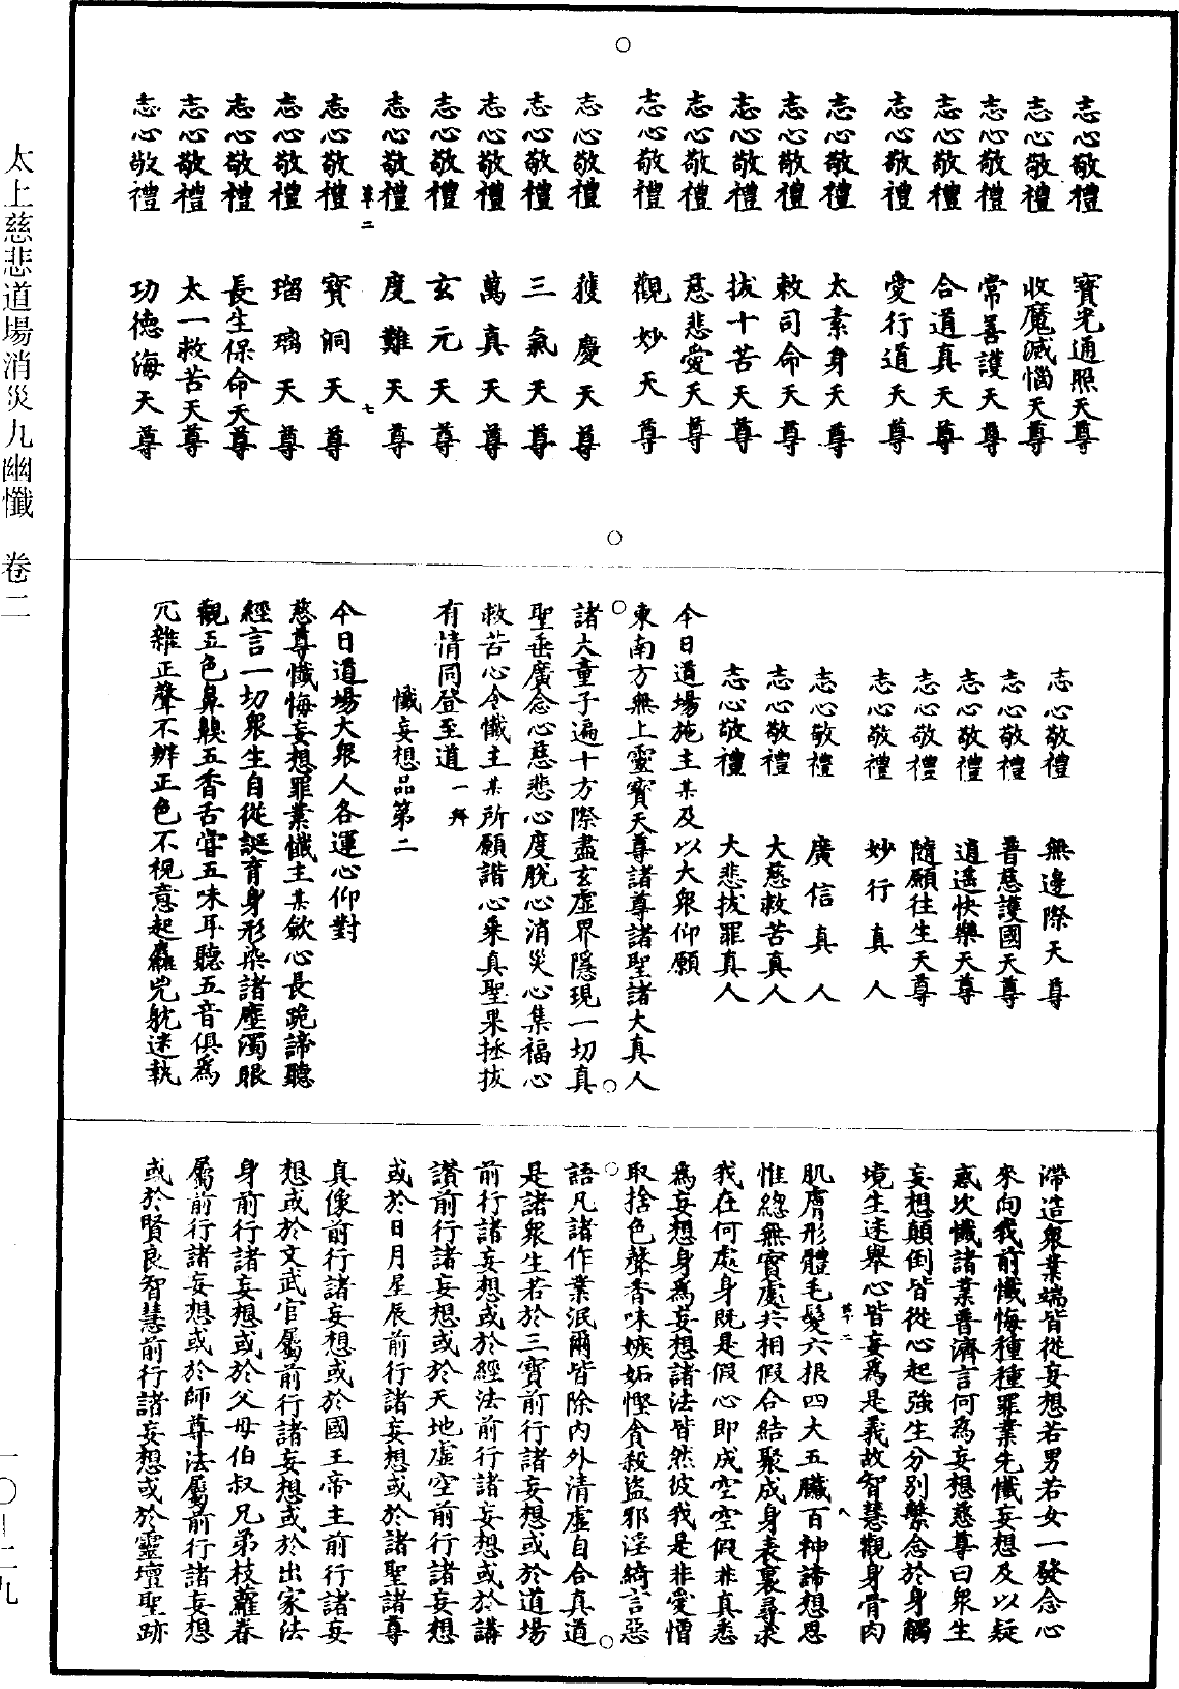 志心敬禮　寶光通照天尊
志心敬禮　收魔滅惱天尊
志心敬禮　常善護天尊
志心敬禮　合道真天尊
志心敬禮　愛行道天尊
志心敬禮　太素身天尊
志心敬禮　敕司命天尊
志心敬禮　拔十苦天尊
志心敬禮　慈悲愛天尊
志心敬禮　觀妙天尊
志心敬禮　獲慶天尊
志心敬禮　三氣天尊
志心敬禮　萬真天尊
志心敬禮　玄元天尊
志心敬禮　度難天尊
草二　七
志心敬禮　寶洞天尊
志心敬禮　瑠璃天尊
志心敬禮　長生保命天尊
志心敬禮　太一救苦天尊
志心敬禮　功德海天尊
志心敬禮　無邊際天尊
志心敬禮　普慈護國天尊
志心敬禮　逍遙快樂天尊
志心敬禮　隨願往生天尊
志心敬禮　妙行真人
志心敬禮　廣信真人
志心敬禮　大慈救苦真人
志心敬禮　大悲拔罪真人
今日道場施主某及以大衆仰願
東南方無上靈寶天尊諸尊諸聖諸大真人
諸大童子遍十方際盡玄虛界隱現一切真
聖垂廣念心慈悲心度脫心消災心集福心
救苦心令懺主某所願諧心乘真聖果拯拔
有情同登至道一拜
懺妄想品第二
今日道場大衆人各運心仰對
慈尊懺悔妄想罪業懺主某歛心長跪諦聽
經言一切衆生自從誕育身形染諸塵濁眼
觀五色鼻齅五香舌嘗五味耳聽五音俱為
冗雜正聲不辨正色不視意起麤兇躭迷執
滯造衆業端皆從妄想若男若女一發念心
來向我前懺悔種種罪業先懺妄想及以疑
惑次懺諸業普濟言何為妄想慈尊曰衆生
妄想顛倒皆從心起強生分別繫念於身觸
境生迷舉心皆妄為是義故智慧觀身骨肉
草二　八
肌膚形體毛髮六根四大五臟百神諦想思
惟總無實處共相假合結聚成身表裏尋求
我在何處身既是假心即成空空假非真悉
為妄想身為妄想諸法皆然彼我是非愛憎
取捨色聲香味嫉妬慳貪殺盜邪淫綺言惡
語凡諸作業泯爾皆除內外清虛自合真道
是諸衆生若於三寶前行諸妄想或於道場
前行諸妄想或於經法前行諸妄想或於講
讚前行諸妄想或於天地虛空前行諸妄想
或於日月星辰前行諸妄想或於諸聖諸尊
真像前行諸妄想或於國王帝主前行諸妄
想或於文武官屬前行諸妄想或於出家法
身前行諸妄想或於父母伯叔兄弟枝蘿眷
屬前行諸妄想或於師尊法屬前行諸妄想
或於賢良智慧前行諸妄想或於靈壇聖跡
太上慈悲道場消災九幽懺　卷二
一〇—二九